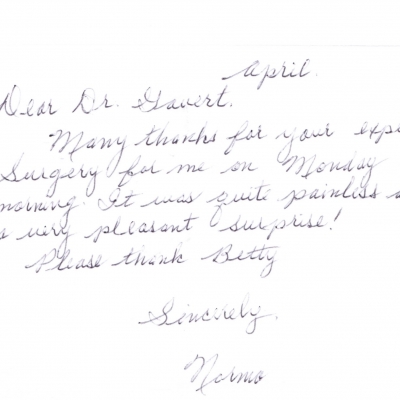 April.
Dear Dr. Gavert.
Many thanks for your expe
Surgery for me on Monday
morning. It was quite painless a
a very pleasant surprise!
Please thank Betty
Sincerely.
Norma